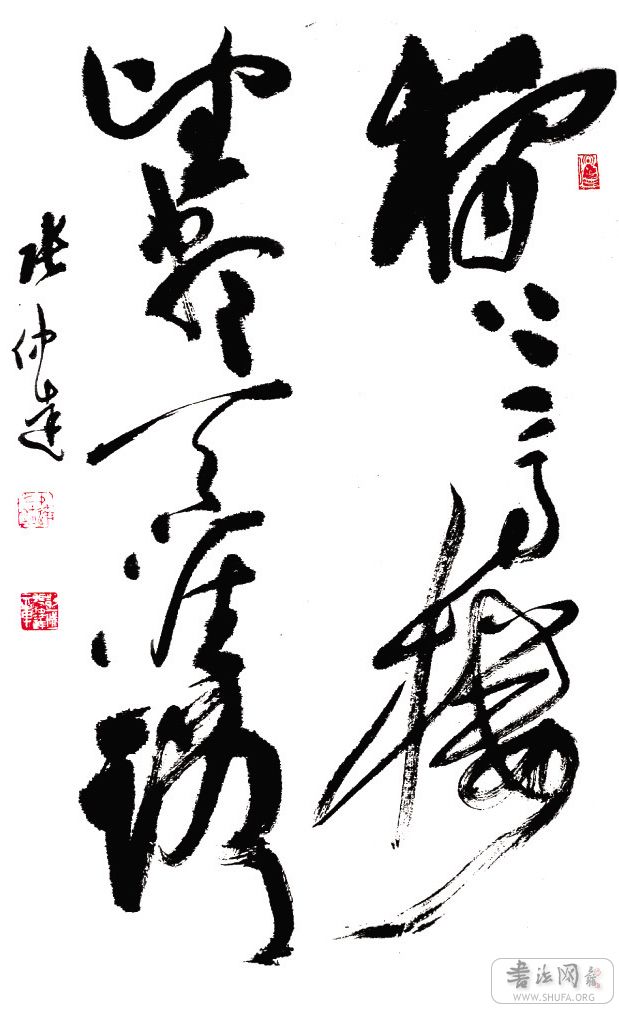 獨上高樓
望盡天涯路
張仲達
書法网
WWW.SHUFA.ORG